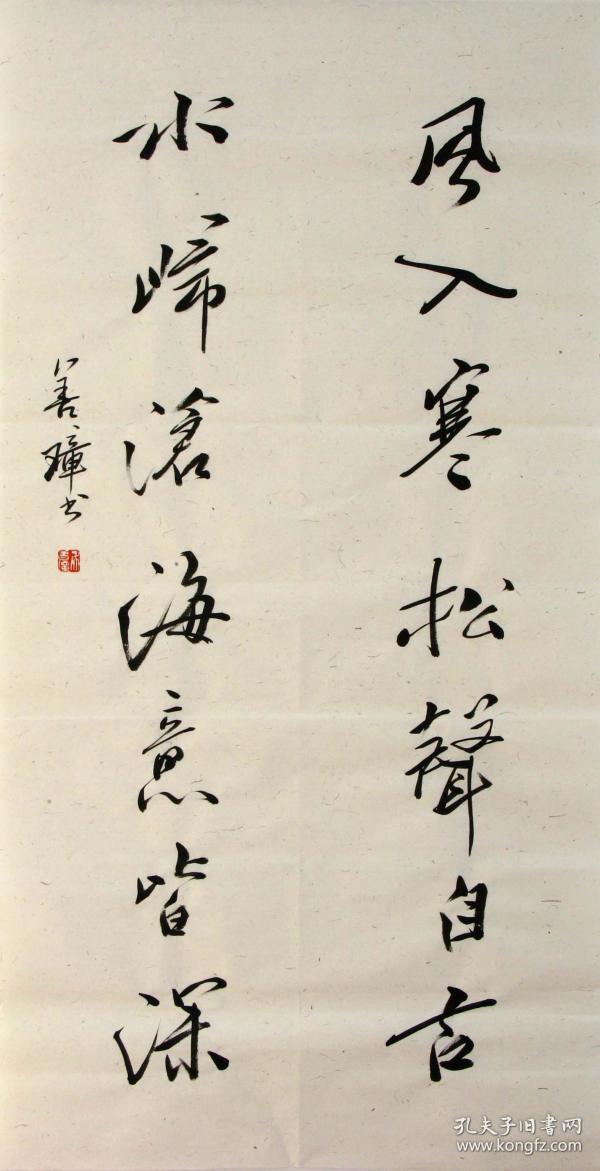 風入寒松聲自言
水歸滄海意皆深
善璋书
孔夫子旧書网
www.kongfz.com